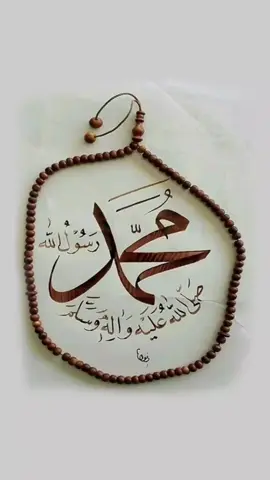 مُحَمَّد
رَسُوْلُ اللّٰه
صَلَّى اللّٰهُ عَلَيْهِ وَاٰلِهٖ وَسَلَّمَ